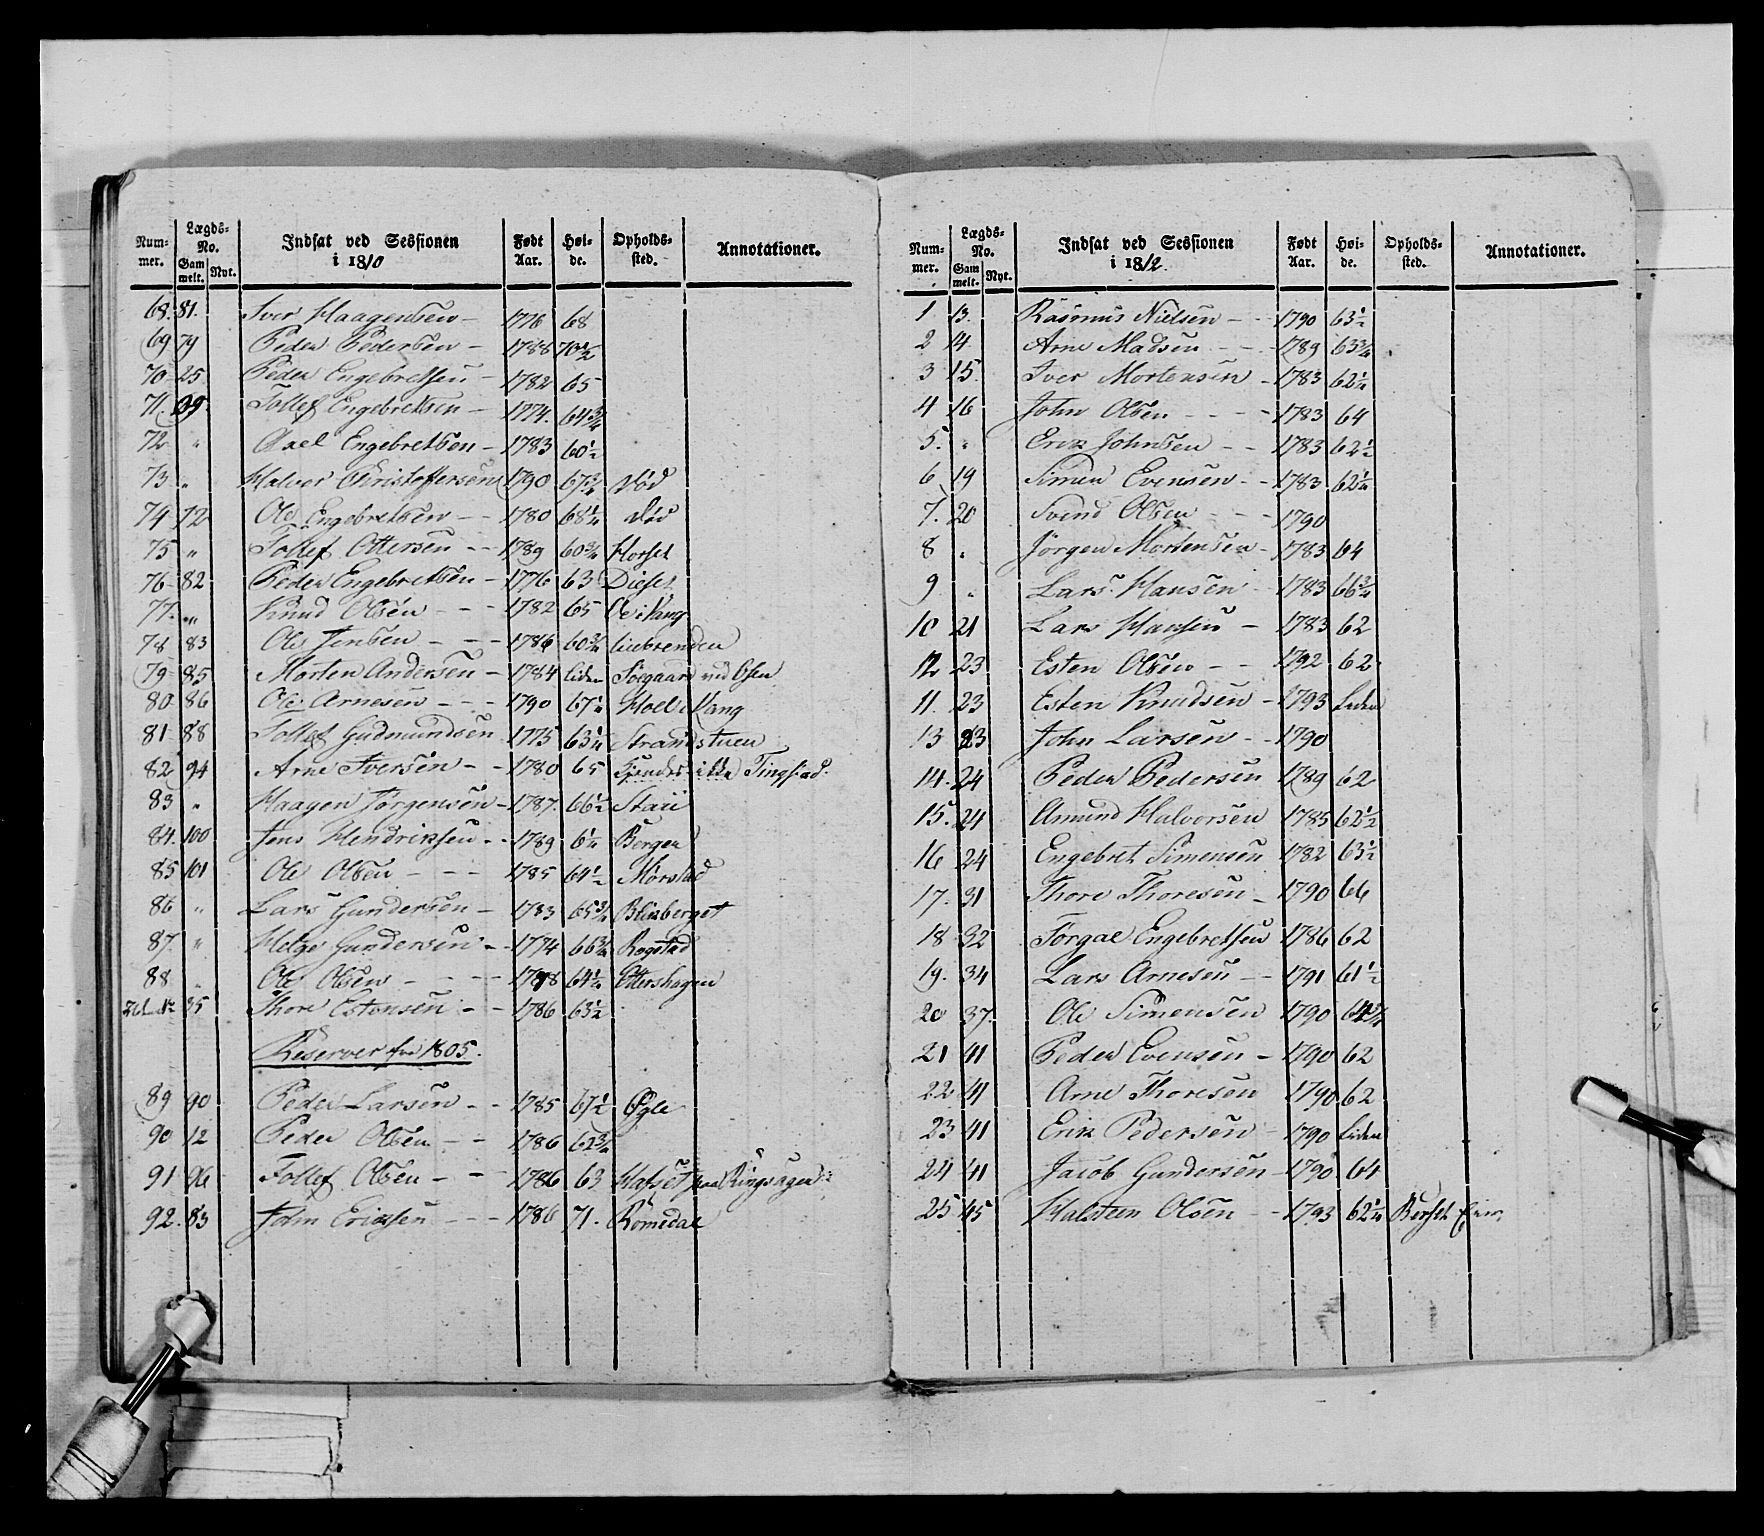 Num- Lægds- Indsat ved Sessionen Født Høi- Opholds- Annotationer.
mer. No. i 1810 Aar. de. sted.
Gam melt. Nyt.
68. 81. Iver Haagensen - 1776 68
69 79 Peder Pedersen - 1788 70½
70 25 Peder Engebretsen - 1782 65
71 09 Tollef Engebretsen - 1774. 64¾
72 " Axel Engebretsen - 1783 60½
73. " Halvor Christoffersen 1790 67¾ død
74 72 Ole Engebretsen - - 1780 68¼ død
75 " Tollef Ottersen - - 1789 60¾ Horset
76 82 Peder Engebretsen - 1776 63 Digset
77. " Knud Olsen - - - 1782 65
78 83 Ole Jensen - - - 1786 60¾
79 85 Morten Andersen - 1784 liden
80 86 Ole Arnesen - - - 1790 67¼ Hoel i Vang
81 88 Tollef Gudmundsen 1775 63¼ Strandstuen
82 94 Arne Iversen - - 1780 65 Kjendes ikke Tingstad.
83 " Haagen Jørgensen - 1787. 66½ Staii
84. 100 Jens Hendriksen - - 1789 6¼ Bergen
85 101 Ole Olsen - - - 1785 64½ Mørstad
86 " Lars Gundersen - 1783 65¾ Bliksberget
87. " Helge Gundersen - 1774 66¾ Rogstad
88 " Ole Olsen - - - - 1788 64½ Ottershagen
35 Thore Estensen - - 1786 63½
Reserver fra 1805.
89 90 Peder Larsen - - 1785 67½ Øgle
90 12 Peder Olsen - - 1786 62¾
91 96 Tollef Olsen - - 1786 63 Hafset paa Ringsager
92. 83 John Eriksen - - - 1786 71. Romedal
Num- Lægds- Indsat ved Sessionen Født Høi- Opholds- Annotationer.
mer. No. i 1812. Aar. de. sted.
Gam melt. Nyt.
1 13. Rasmus Nielsen - - 1790 63½
2 14 Arne Madsen - - - 1789 63¾
3 15. Iver Mortensen - 1783 62¼
4 16 John Olsen - - - - 1783 64
5. " Erik Johnsen - - 1783 62½
6 19 Simen Evensen - - 1783 62¼
7. 20 Svend Olsen - - - 1790
8 " Jörgen Mortensen - 1783 64
9 " Lars Hansen - 1783 66¾
10 21 Lars Hansen - 1783 62
12 23 Esten Olsen - - 1792 62
11. 23 Esten Knudsen - 1793 Liden
13 23 John Larsen - - 1790
14. 24 Peder Pedersen 1789 62
15. 24 Amund Halvorsen 1785 62½
16 24 Engebret Simensen 1782 63½
17. 31 Thore Thoresen - 1790 66
18 32 Torgal Engebretsen 1786 62
19. 34 Lars Arnesen - - 1791 61½
20 37. Ole Simensen 1790 64¾
21 41 Peder Evensen - 1790 62
22 41 Arne Thoresen 1790 62
23 41 Erik Pedersen - 1790 Liden
24 41 Jacob Gundersen - 1790 64
25 45 Halsteen Olsen - - 1793 62¼ Berset